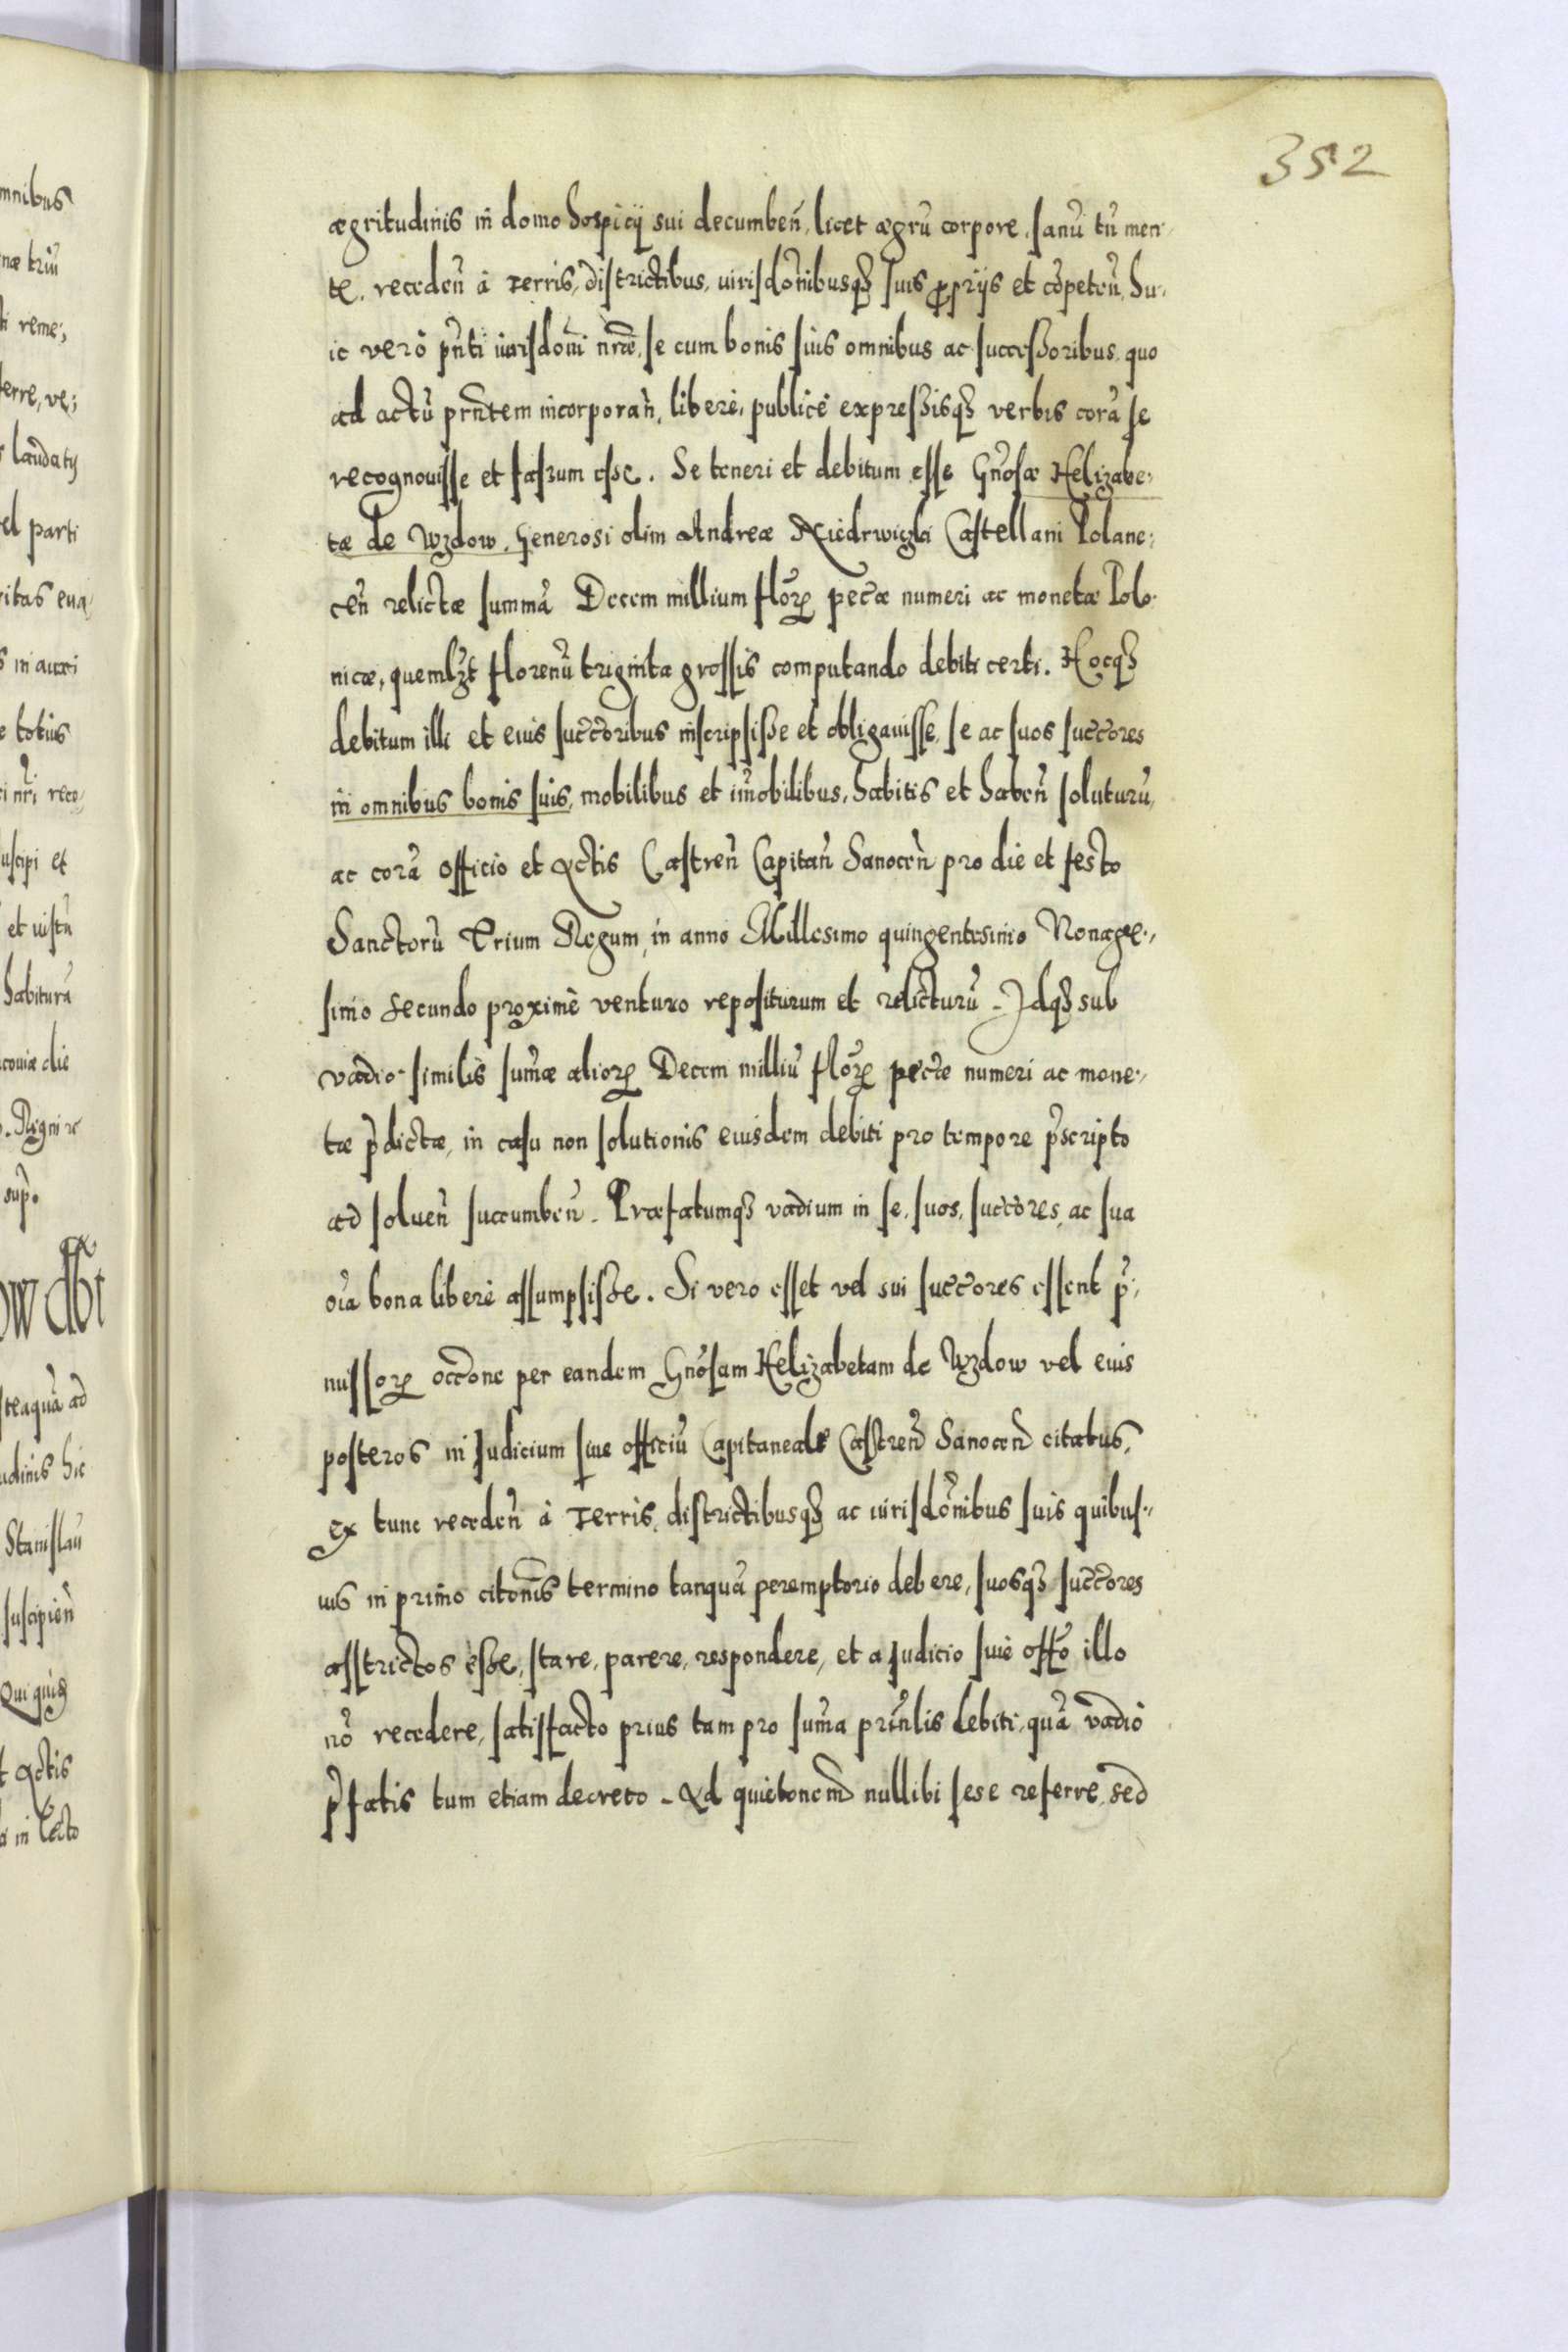 352
ægritudinis in domo hospicÿ sui decumben̄, licet ægrū corpore, sanū tn̄ men-
te, receden̄ à Terris, districtibus, iurisdōnibusqȝ suis ꝓprijs et cōpeten̄, hu-
ic verò pn̄ti iurisdōni nr̄æ, se cum bonis suis omnibus ac successoribus quo
ad actū prn̄tem incorporan̄, liberè, publicè expressisqȝ verbis corā se
recognouisse et fassum esse. Se teneri et debitum esse Gn̄osæ Helizabe-
tæ de Wzdow, Generosi olim Andreæ Niedrwiczki Castellani Polane-
cen̄ relictæ summā Decem millium flōrꝝ pec̄æ numeri ac monetæ Polo-
nicæ, quemlȝt florenū triginta grossis computando debiti certi. Hocqȝ
debitum illi et eius succ̄oribus inscripsisse et obligauisse, se ac suos succ̄ores
in omnibus bonis suis, mobilibus et im̄obilibus, habitis et haben̄ soluturū,
ac corā officio et Actis Castren̄ Capitan̄ Sanocen̄ pro die et festo
Sanctorū Trium Regum, in anno Millesimo quingentesimo Nonage-
simo secundo proximè venturo repositurum et relicturū. Idqȝ sub
vadio similis sum̄æ aliorꝝ Decem milliū flōrꝝ pec̄æ numeri ac mone-
tæ p̄dictæ, in casu non solutionis eiusdem debiti pro tempore p̄scripto
ad soluen̄ succumben̄. Præfatumqȝ vadium in se, suos, succ̄ores, ac sua
oīa bona liberè assumpsisse. Si vero esset vel sui succ̄ores essent p̄-
missorꝝ occ̄one per eandem Gn̄osam Helizabetam de Wzdow vel eius
posteros in Judicium siue officiū Capitaneale Castren̄ Sanocen̄ citatus,
ex tunc receden̄ à Terris, districtibusqȝ ac iurisdōnibus suis quibus-
uis in primo citōnis termino tanquā peremptorio debere, suosqȝ succ̄ores
asstrictos esse, stare, parere, respondere, et a Judicio siue offō illo
nō recedere, satisfacto prius tam pro sum̄a prīnlis debiti, quā vadiò
p̄fatis tum etiam decreto. Ad quietōnem nullibi sese referre, sed